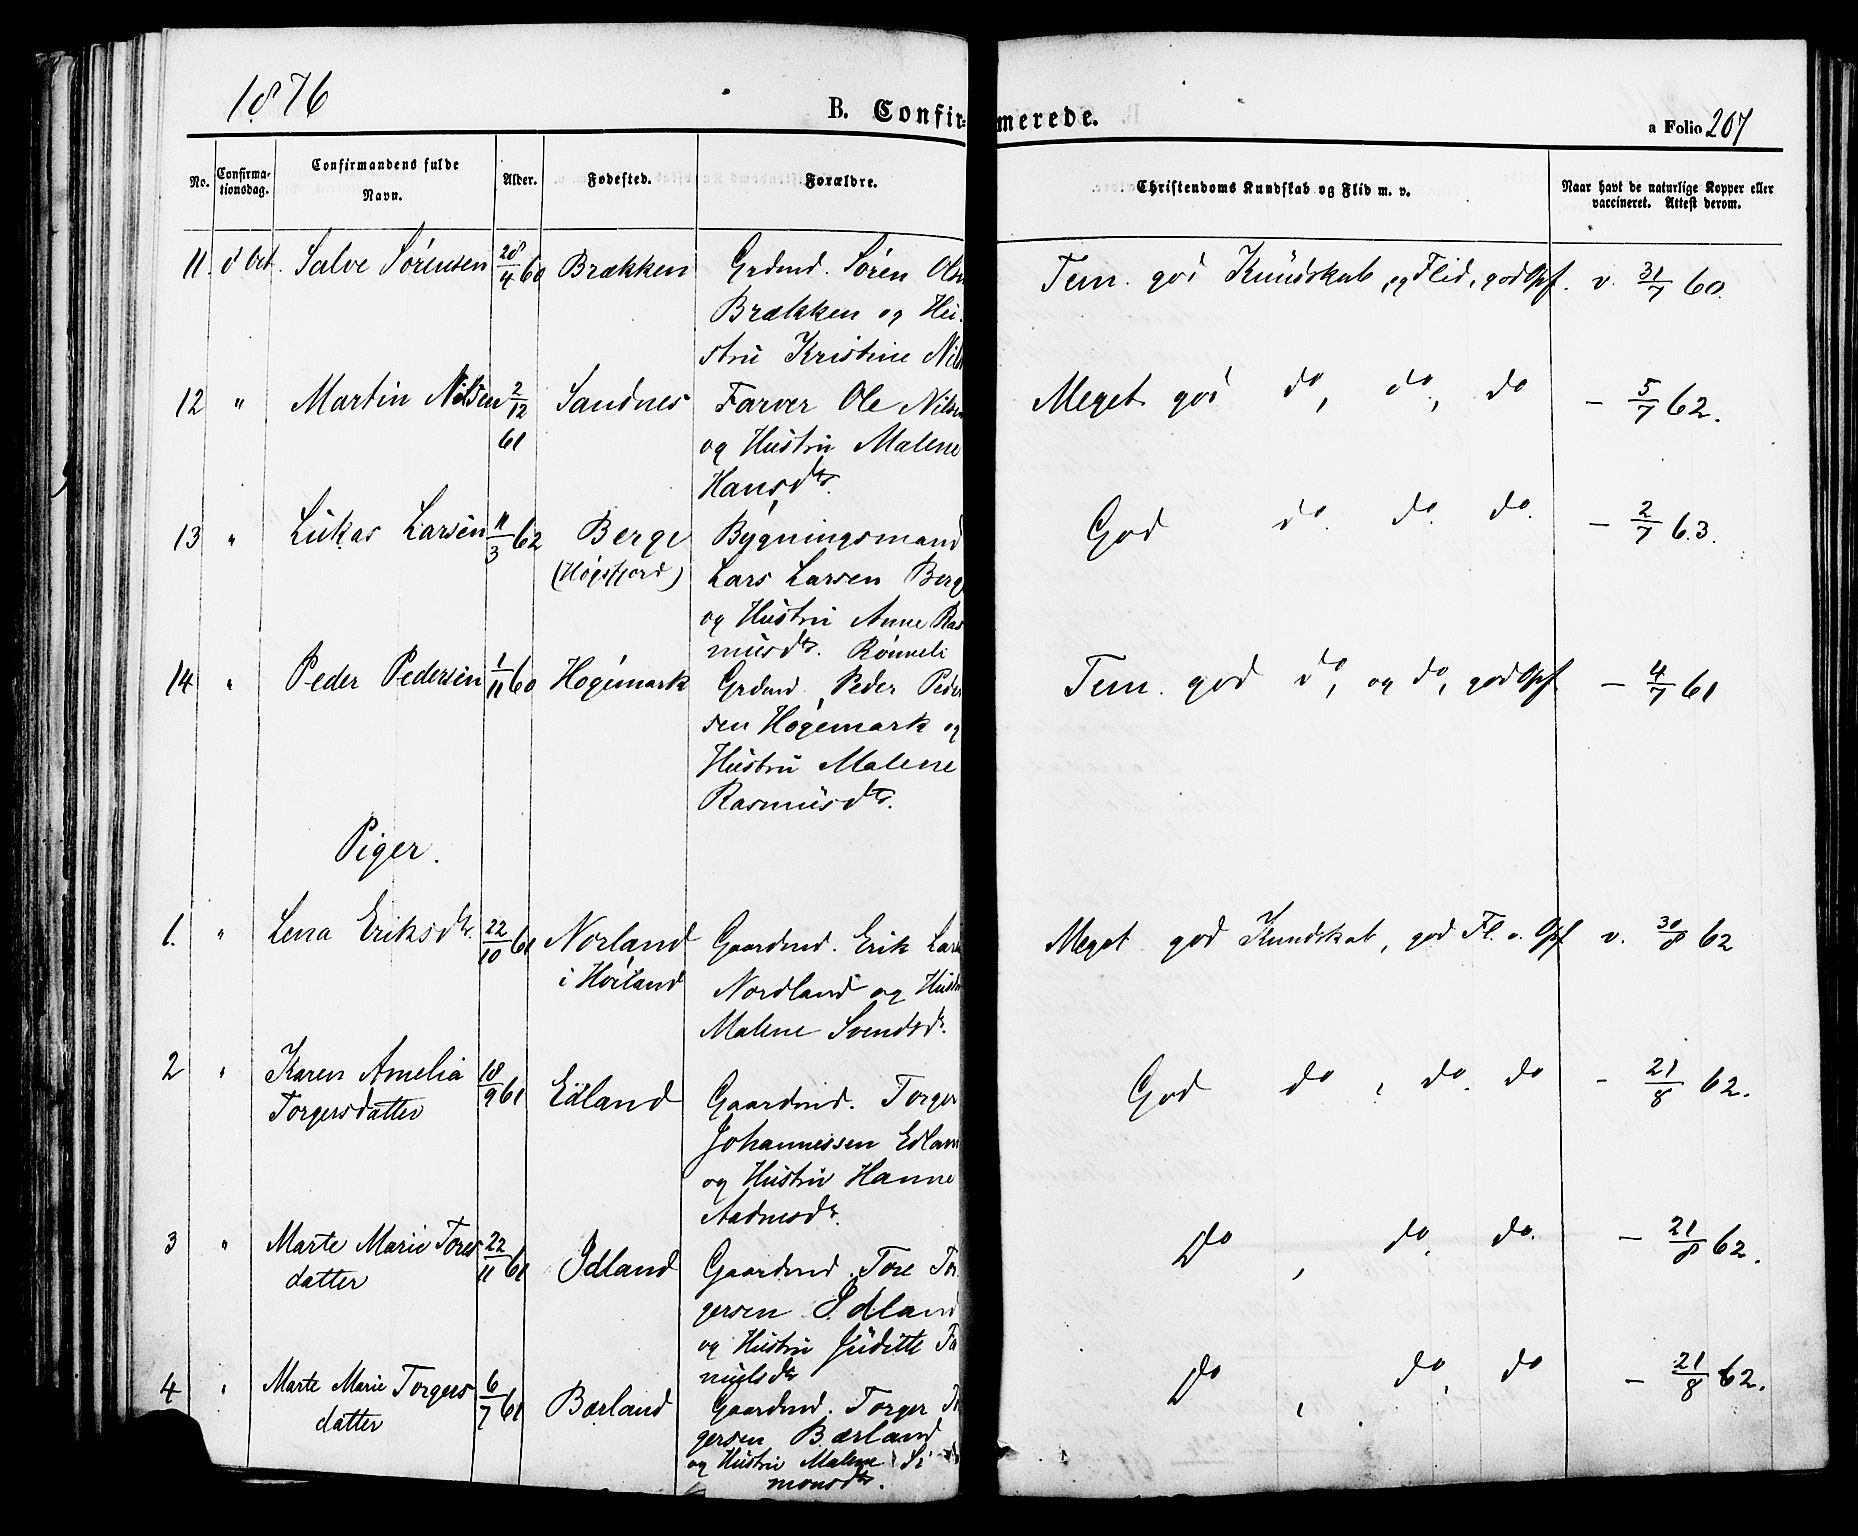 1876
B. Confirmerede.
a Folio 207
No.
Confirmationsdag.
Confirmandens fulde Navn.
Alder.
Fødested.
Forældre.
Christendoms Kundskab og Flid m. v.
Naar havt de naturlige Kopper eller vaccineret. Attest derom.
11. 8 Oct. Salve Sørensen 28/4 60 Brækken Grdmd. Søren Olsn Tem. god Kundskab, og Flid, god Opf. v. 31/7 60.
Brækken og Hu-
stru Kristine Nils
12 " Martin Nilsen 2/12 61 Sandnes Farver Ole Nilsen Meget god do, do, do – 5/7 62.
og Hustru Malene
Hansdtr.
13 " Lukas Larsen 11/3 62 Berge Bygningsmand God do. do. do. – 2/7 63.
(Høgsfjord) Lars Larsen Berge
og Hustru Anne Ras
musdtr. Rønneli
14 " Peder Pedersen 1/11 60 Høgemark Grdmd. Peder Peder Tem. god do, og do, god Opf – 4/7 61
sen Høgemark og
Hustru Malene
Rasmusdtr.
Piger.
1. " Lena Eriksdtr. 22/10 61 Norland Gaardmd. Erik Lars Meget god Kundskab, god Fl. o. Opf v. 30/8 62
i Høiland Nordland og Hustru
Malene Svendsdr.
2 " Karen Amelia 18/9 61 Edland Gaardmd. Torger God do, do. do – 21/8 62.
Torgersdatter Johannessen Edland
og Hustru Hanne
Aadnesdr.
3 " Marte Marie Tores 22/11 61 Idland Gaardmd. Tore Tor Do, do. do. – 21/8 62.
datter gersen Idland
og Hustru Juditte
4 " Marte Marie Torgers 6/7 61 Bærland Gaardmd. Torger Do, do, do – 21/8 62.
datter gersen Bærland
og Hustru Malene Si
monsdtr.